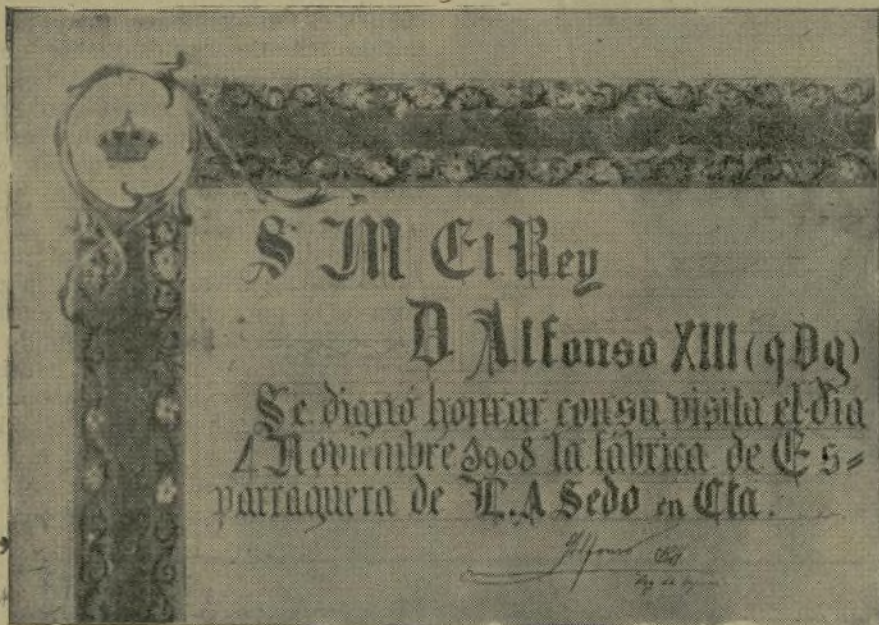 S M El Rey
D. Alfonso XIII (q D g)
Se dignó honrar con su visita el día
4 Noviembre 1908 la fábrica de Es=
parraguera de L. A Sedo en Cta.
Alfonso